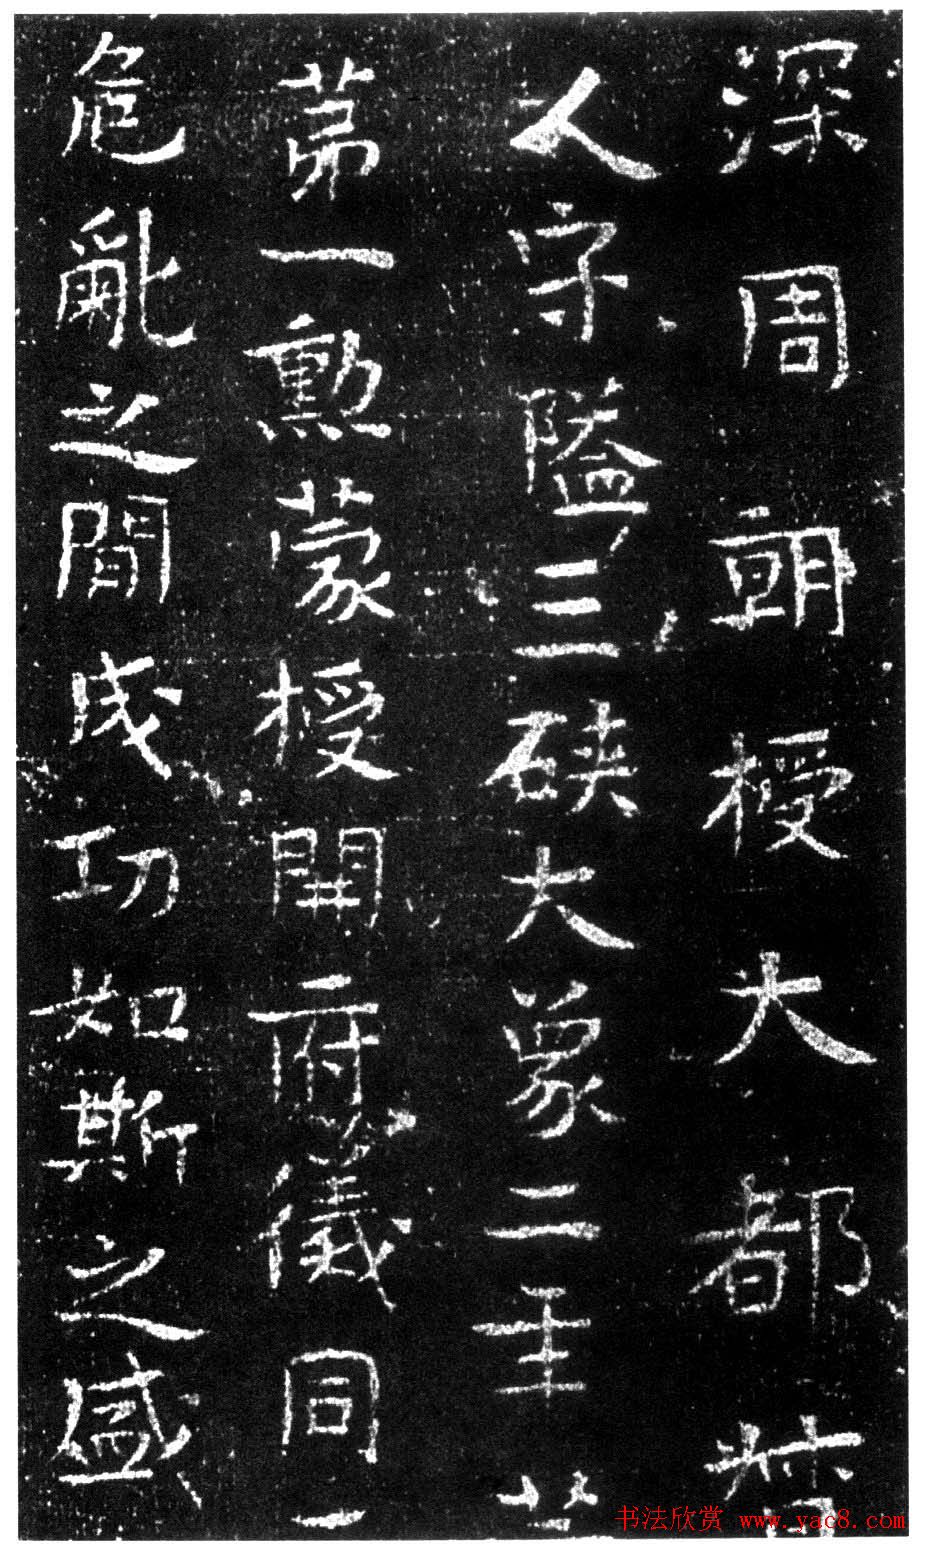 深周朝授大都督
人守隘三硤大象二年
苐一勲蒙授開府儀同
危亂之間成功如斯之盛
书法欣赏 www.yac8.com